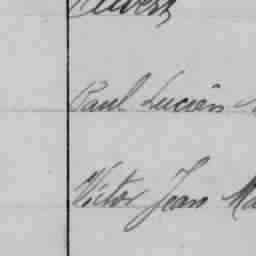 Paul Lucien
Victor Jean Ma